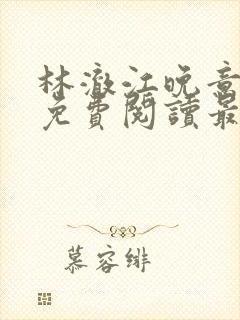 林澈江晚音
免費閱讀最
慕容緋